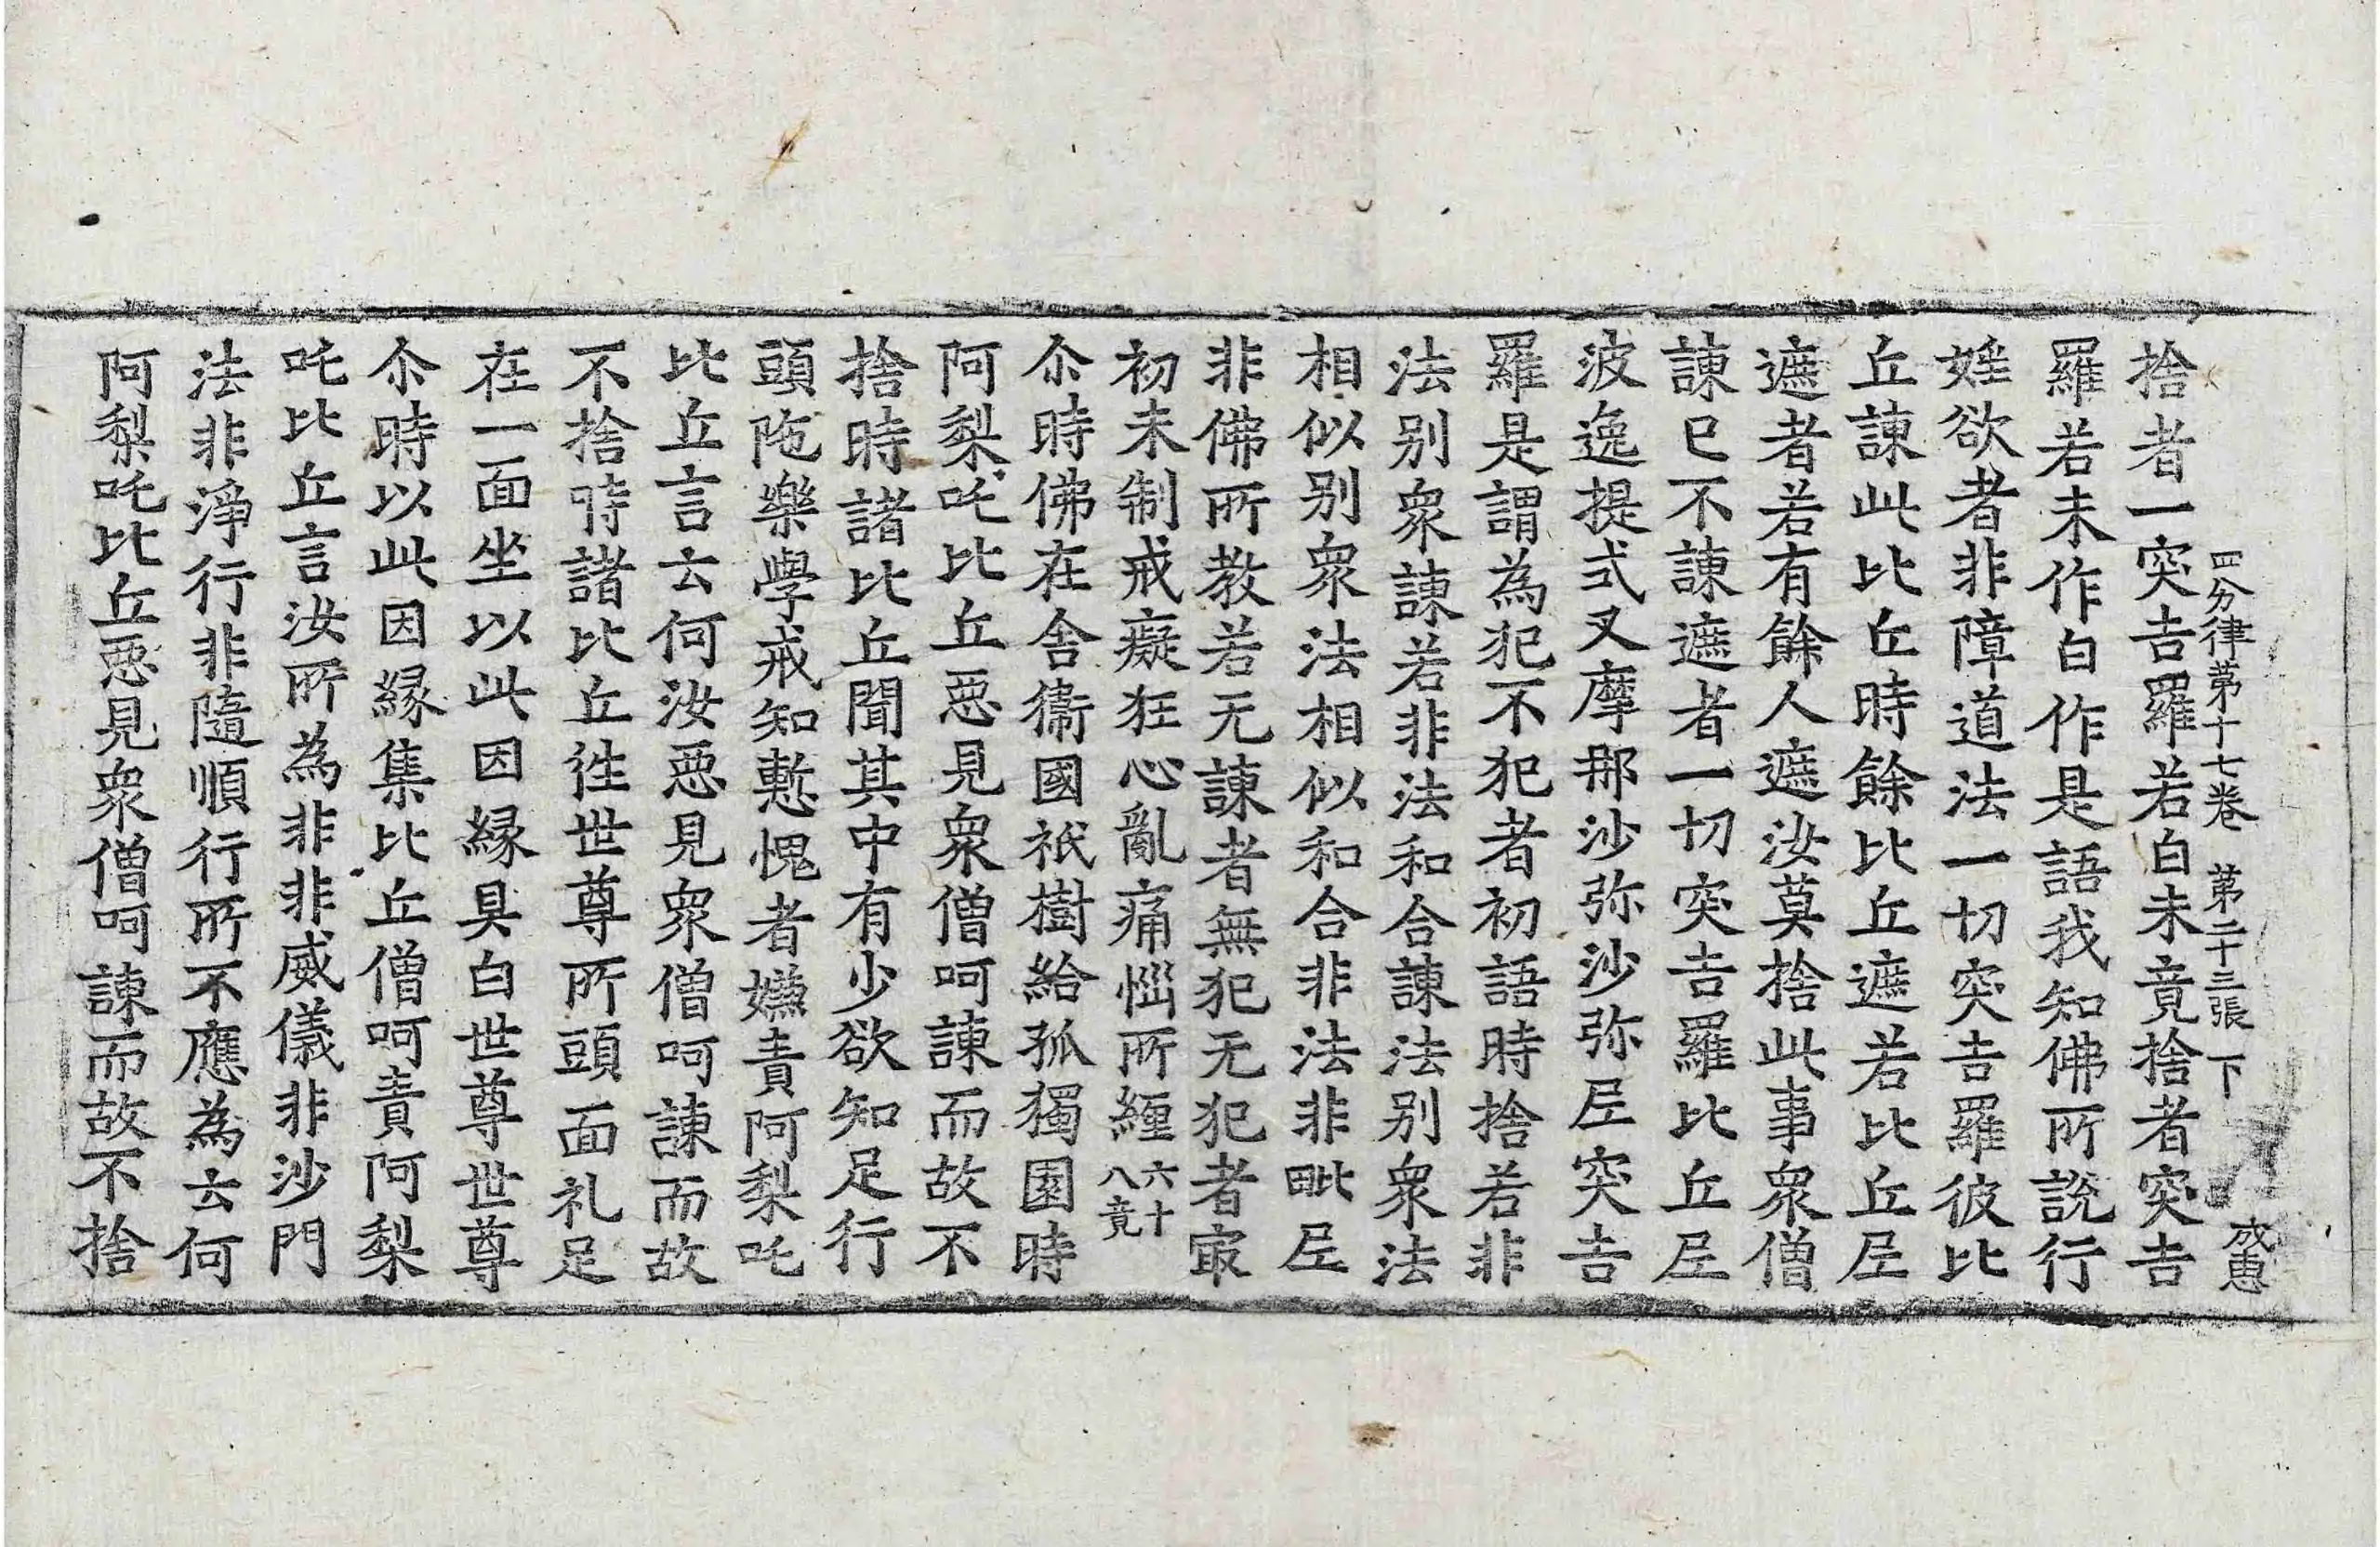 四分律苐十七卷 苐二十三張 下 成惠
捨者一突吉羅若白未竟捨者突吉
羅若未作白作是語我知佛所說行
婬欲者非障道法一切突吉羅彼比
丘諫此比丘時餘比丘遮若比丘尼
遮者若有餘人遮汝莫捨此事衆僧
諫已不諫遮者一切突吉羅比丘尼
波逸提式叉摩那沙弥沙弥尼突吉
羅是謂為犯不犯者初語時捨若非
法别衆諫若非法和合諫法别衆法
相似别衆法相似和合非法非毗尼
非佛所教若无諫者無犯无犯者㝡
初未制戒癡狂心亂痛惱所纏六十八竟
尒時佛在舍衞國祇樹給孤獨園時
阿梨吒比丘惡見衆僧呵諫而故不
捨時諸比丘聞其中有少欲知足行
頭陁樂學戒知慙愧者嫌責阿梨吒
比丘言云何汝惡見衆僧呵諫而故
不捨時諸比丘徃世尊所頭面礼足
在一面坐以此因緣具白世尊世尊
尒時以此因緣集比丘僧呵責阿梨
吒比丘言汝所為非非威儀非沙門
法非淨行非隨順行所不應為云何
阿梨吒比丘惡見衆僧呵諫而故不捨